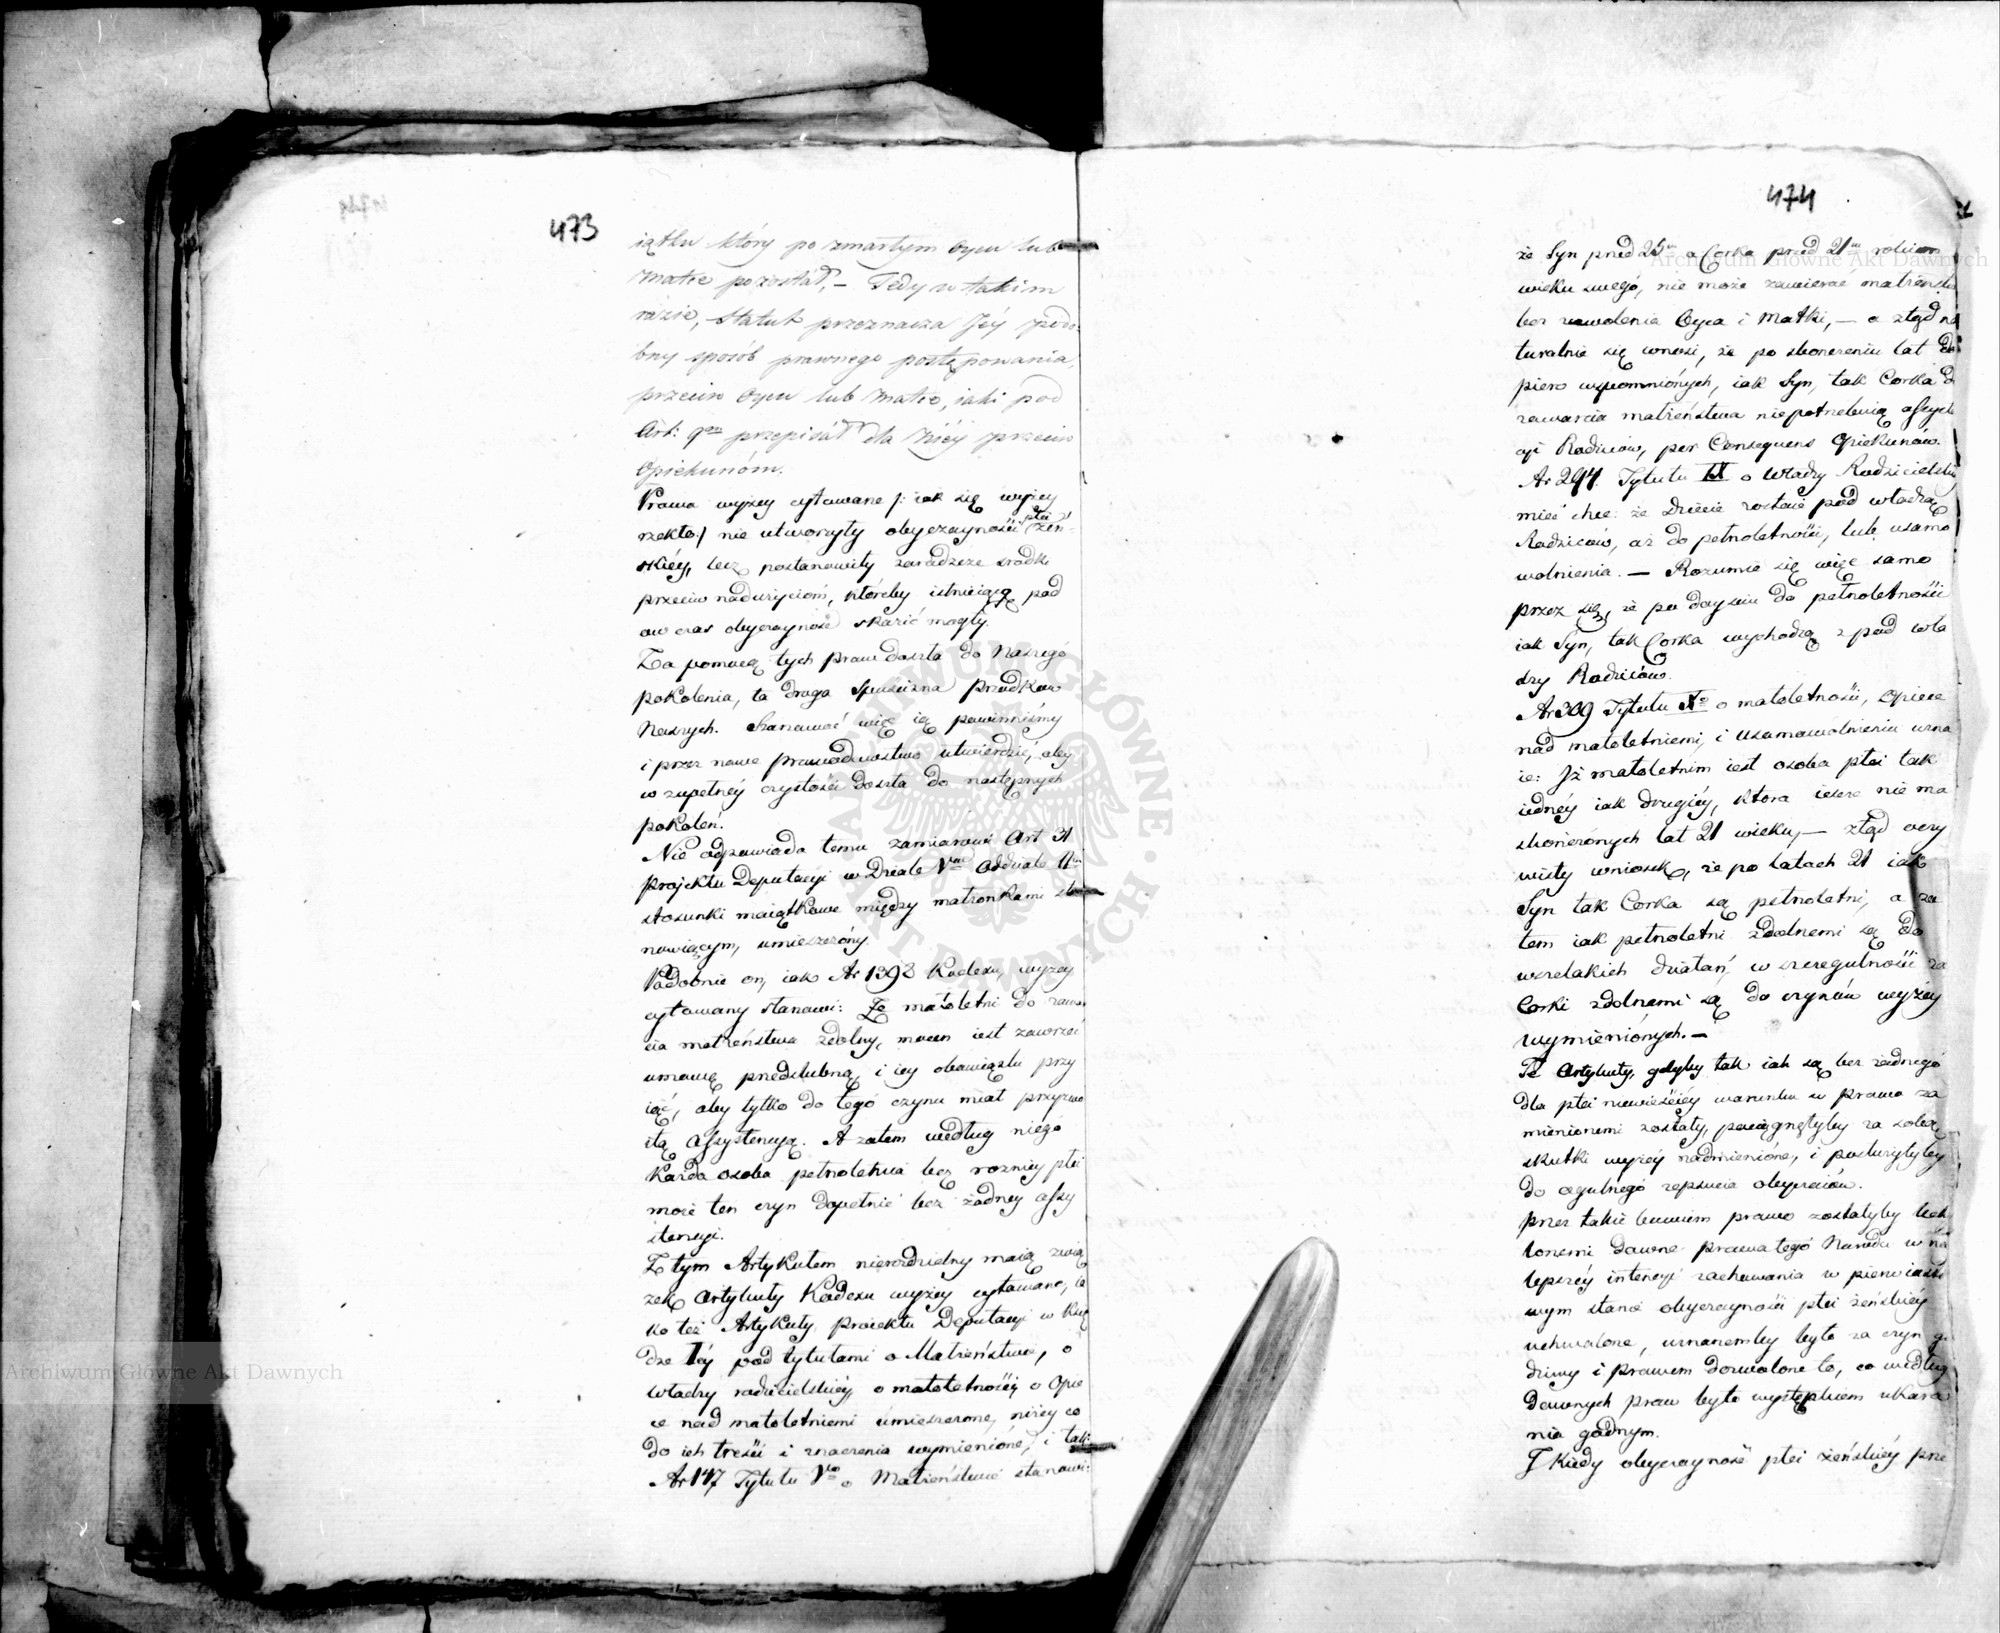 473
iątku który po zmarłym Oycu lub
Matce pozostał, – Tedy w takim
razie, Statut przeznacza Jéy podo-
bny sposób prawnego postępowania,
przeciw Oycu lub Matce, iaki pod
Art: 9m przepisał dla Niéy przeciw
Opiekunóm.
Prawa wyżey cytowane /: iak się wyżey
rzekło:/ nie utworzyły obyczayności płci żeń-
skiéy, lecz postanowiły zaradcze srodki
przeciw nadużycióm, któreby istnieiącą pod
ow czas obyczayność skazić mogły.
Za pomocą tych praw doszła do Naszego
pokolenia, ta droga spuścizna Przodków
Naszych. Szanować więc ią powinniśmy
i przez nowe prawodawstwo utwierdzić, aby
w zupełnéy czystości doszła do następnych
pokoleń.
Nie odpowiada temu zamiarowi Art 31
projektu Deputacyi w Dziale Vm Oddziale IIm
stosunki maiątkowe między małżonkami sta
nowiącym, umieszczóny.
Podobnie on, iak Ar 1398 Kodexu, wyżey
cytowany stanowi: Że małoletni do zawar
cia małżeństwa zdolny, mocen iest zawrzeć
umowę przedślubną, i iey obowiązki przy
iąć, aby tylko do tego czynu miał przyzwo
itą Assystencyą. A zatem według niego
Każda osoba pełnoletnia bez rożnicy płci
może ten czyn dopełnić bez żadney assy
stencyi.
Z tym Artykułem nierozdzielny maią zwią
zek Artykuły Kodexu wyżey cytowane, ia
ko też Artykuły, proiektu Deputacyi w Księ
dze Iéy pod tytułami o Małżeństwie, o
władzy rodzicielskiéy, o małoletnościi, o Opie
ce nad małoletniemi umieszczone, niżey co
do ich treści i znaczenia wymienióne, i tak:
Ar 147 Tytułu Vo o Małżeństwie stanowi:
474
że Syn przed 25m a Corka przed 21m rokiem
wieku swego, nie może zawierać małżeństwa
bez zezwolenia Oyca i Matki, — a ztąd na
turalnie się wnosi, że po skonczeniu lat do
piero wspomniónych, iak Syn, tak Corka do
zawarcia małżeństwa nie potrzebuią assysten
cyi Rodziców, per Consequens Opiekunów.
Ar 294 Tytułu IX o Władzy Rodzicielskiey
mieć chce: że dziecie zostaie pod władzą
Rodziców, aż do pełnoletności, lub usamo
wolnienia. — Rozumie się więc samo
przez się, że po doyściu do pełnoletności
iak Syn, tak Corka wychodzą z pod wła
dzy Rodziców.
Ar 309 Tytułu Xo o małoletności, Opiece
nad małoletniemi, i usamowolnieniu uzna
ie: Iż małoletnim iest osoba płci tak
iednéy iak drugiéy, ktora ieszcze nie ma
skończónych lat 21 wieku, — ztąd oczy
wisty wniosek, że po latach 21 iak
Syn tak Corka są pełnoletni, a za
tem iak pełnoletni zdolnemi są do
wszelakich działań, w szczegulności za
Corki zdolnemi są do czynów wyżéy
wymieniónych. —
Te Artykuły, gdyby tak iak są bez żadnego
dla płci niewieściey warunku w prawo za
mienionemi zostały, pociągnęłyby za sobą
skutki wyżéy nadmienióne, i posłużyłyby
do ogulnego zepsucia obyczaiów.
przez takie bowiem prawo zostałyby
lonemi dawne prawa tego Narodu w na
lepszéy intencyi zachowania w pierwiastko
wym stanie obyczayności płci żeńskiéy
uchwalone, uznanemby było za czyn go
dziwy i prawem dozwolone to, co według
Dawnych praw było występkiem ukara
nia godnym.
I Kiedy obyczayność płci żeńskiéy prze
Archiwum Główne Akt Dawnych
Archiwum Główne Akt Dawnych
ARCHIWUM GŁÓWNE AKT DAWNYCH